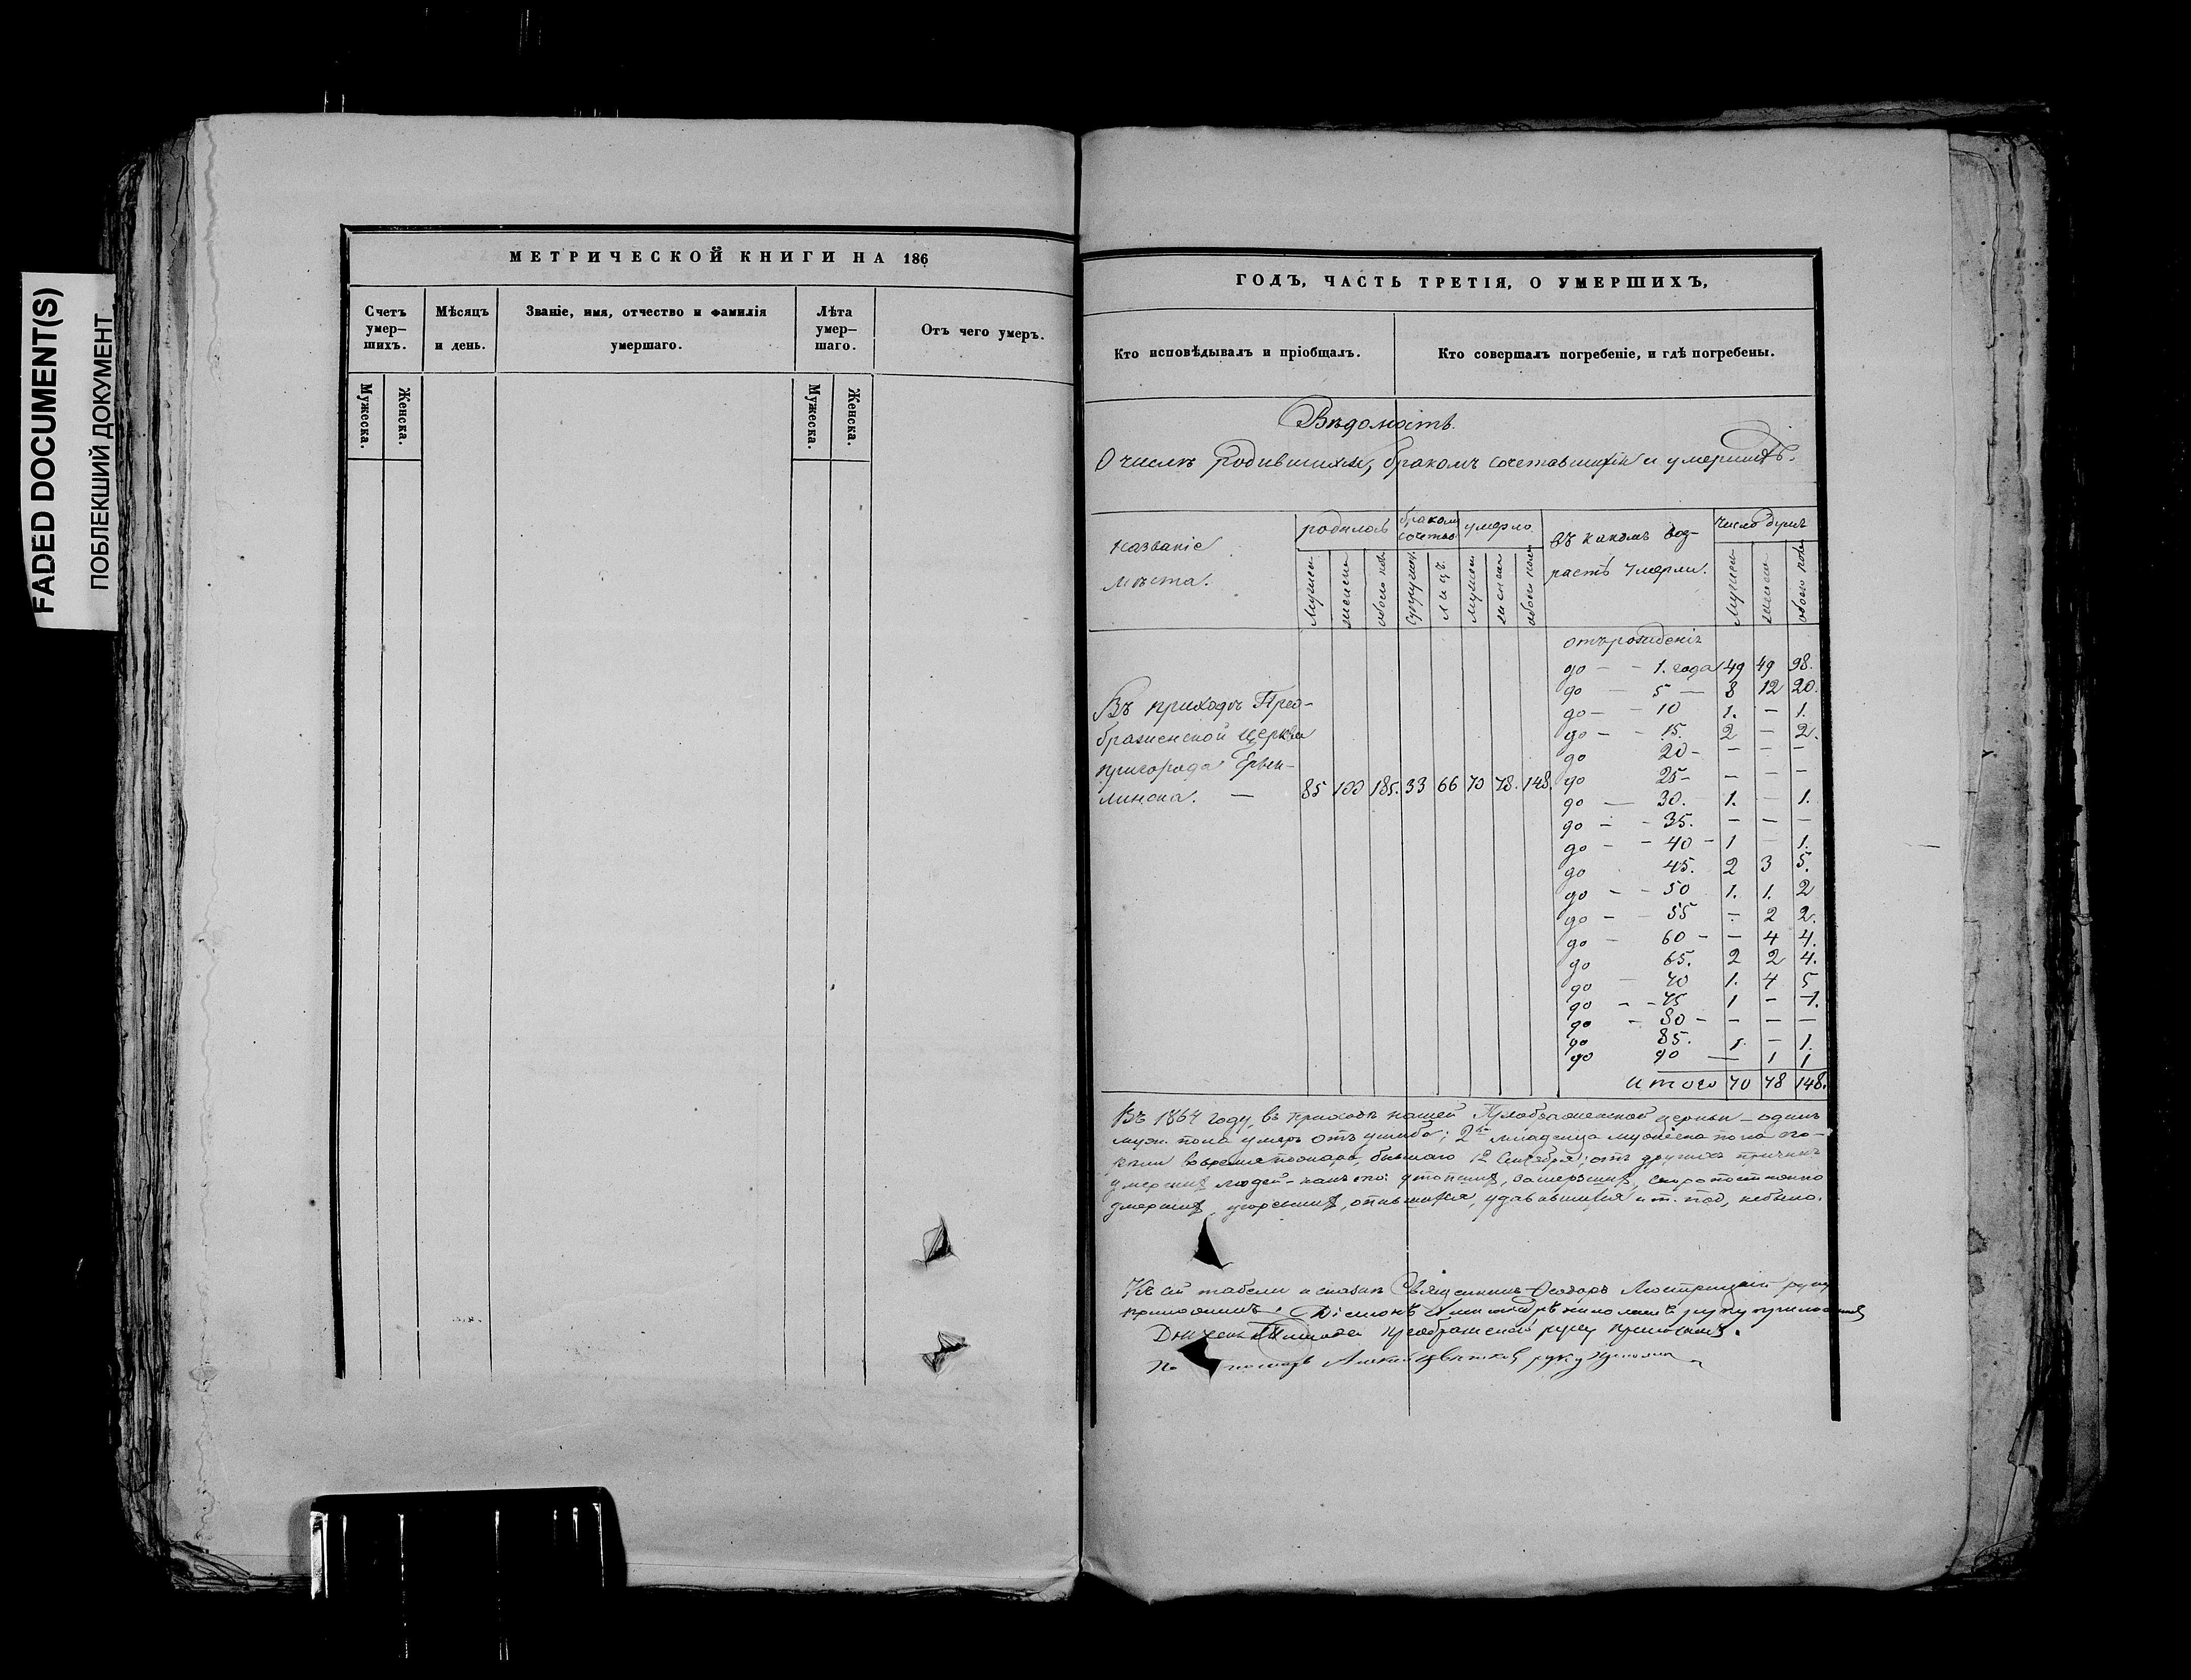 FADED DOCUMENT(S)
ПОБЛЕКШИЙ ДОКУМЕНТ
МЕТРИЧЕСКОЙ КНИГИ НА 186
Счетъ умер-
шихъ.
Мѣсяцъ
и день.
Званіе, имя, отчество и фамилія
умершаго.
Лѣта
умер-
шаго.
Отъ чего умеръ.
Мужеска.
Женска.
Мужеска.
Женска.
ГОДЪ, ЧАСТЬ ТРЕТІЯ, О УМЕРШИХЪ,
Кто исповѣдывалъ и пріобщалъ.
Кто совершалъ погребеніе, и гдѣ погребены.
Вѣдомость.
О числѣ родившихся, бракомъ сочетавшихся и умершихъ.
названіе
мѣста.
родилось
бракомъ
сочетав
умерло
въ какомъ воз-
растѣ умерли.
число душъ
мужеск
женска
обоего пол
супруж.
лицъ.
мужеск
женска
обоего пола
мужеск
женска
обоего пола
отъ рожденія
до - - 1. года 49 49 98.
до - 5 - 8 12 20.
до - - 10 1. - 1.
до - - 15. 2 - 2.
до 20 - - - -
до 25 - - - -
до - 30. 1. - 1.
до - - 35. - - -
до - - 40 - 1 - 1.
до 45. 2 3 5.
до - - 50 1. 1. 2
до - - 55 - 2 2.
до - 60 - - 4 4.
до 65. 2 2 4.
до - 70 1. 4 5
до - - 75 1 - 1.
до - 80 - - - -
до 85. 1. - 1.
до 90 - 1 1
итого 70 78 148.
Въ приходѣ Прео-
браженской церкви
пригорода
85 100 185. 33 66 70 78. 148.
Въ 1864 году, въ приходѣ нашей Преображенской церкви - одинъ
муж. пола умеръ отъ ушиба; 2 младенца мужеска пола сго-
рѣли во время пожара, бывшаго 12 Сентября; отъ другихъ причинъ
умершихъ людей - какъ то: утопшихъ, замерзшихъ, скоропостижно
умершихъ, угорѣвшихъ, опившихся, удавившихся и т. под, небыло.
Къ сей табели Священникъ Ѳеодоръ руку
приложилъ. Діаконъ руку приложилъ
Дьячекъ Преображенской руку приложилъ.
Алексѣй руку приложи